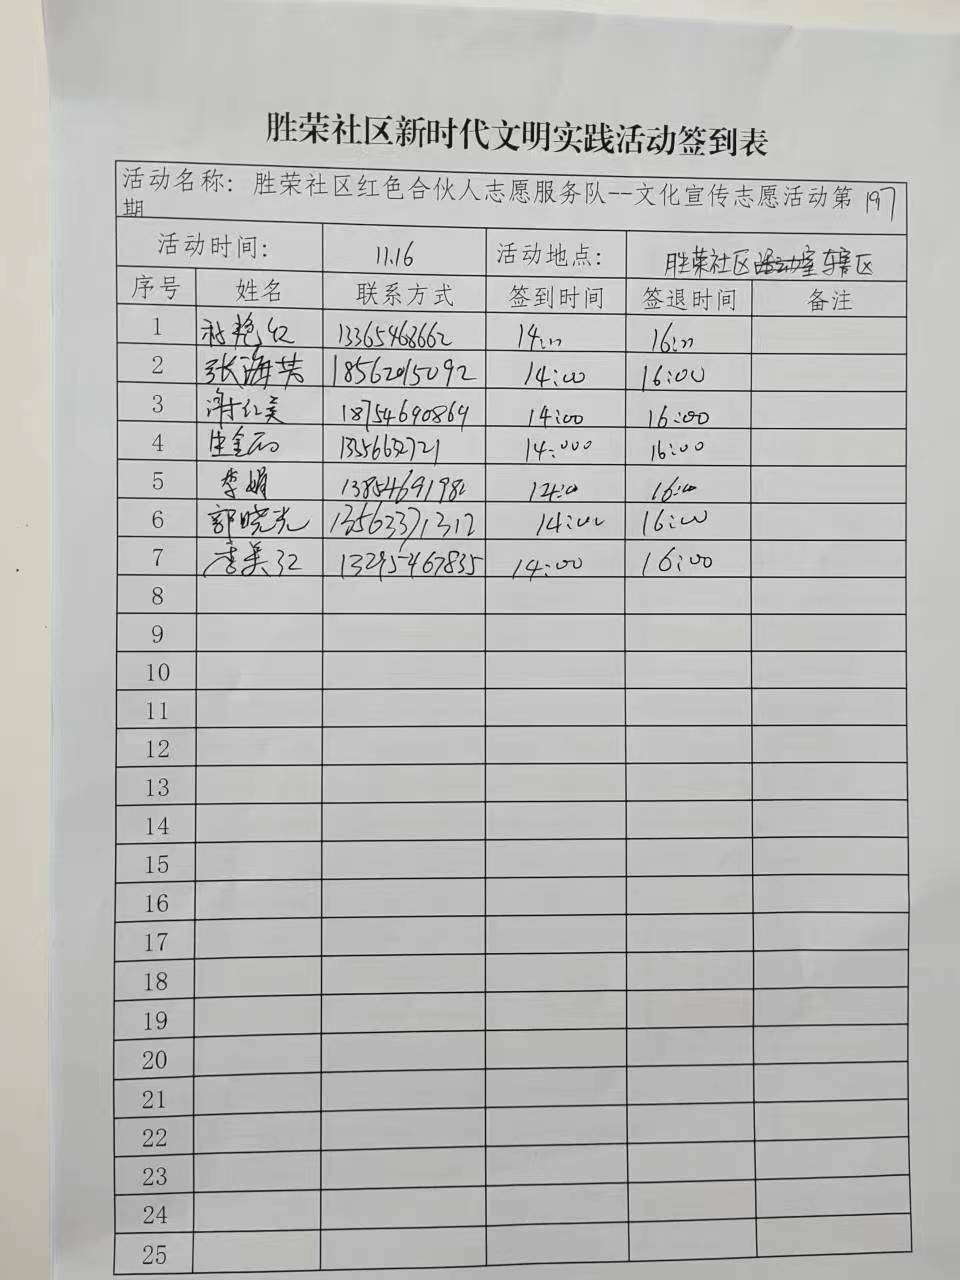 胜荣社区新时代文明实践活动签到表
活动名称：胜荣社区红色合伙人志愿服务队--文化宣传志愿活动第197
期
活动时间： 11.16 活动地点： 胜荣社区活动室辖区
序号 姓名 联系方式 签到时间 签退时间 备注
1 艳红 13365468662 14:00 16:00
2 张海英 18562015092 14:00 16:00
3 谢红美 18754690869 14:00 16:00
4 1356632721 14:000 16:00
5 李娟 1385469198 14:00 16:00
6 郭晓光 13563371312 14:00 16:00
7 李美江 13295467835 14:00 16:00
8
9
10
11
12
13
14
15
16
17
18
19
20
21
22
23
24
25